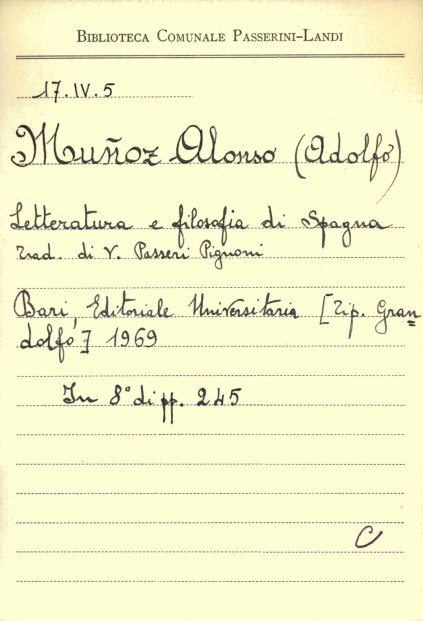 Biblioteca Comunale Passerini-Landi
17.IV.5
Muñoz Alonso (Adolfo)
Letteratura e filosofia di Spagna
Trad. di V. Passeri Pignoni
Bari, Editoriale Universitaria [Tip. Gran=
dolfo] 1969
In 8° di pp. 245
C